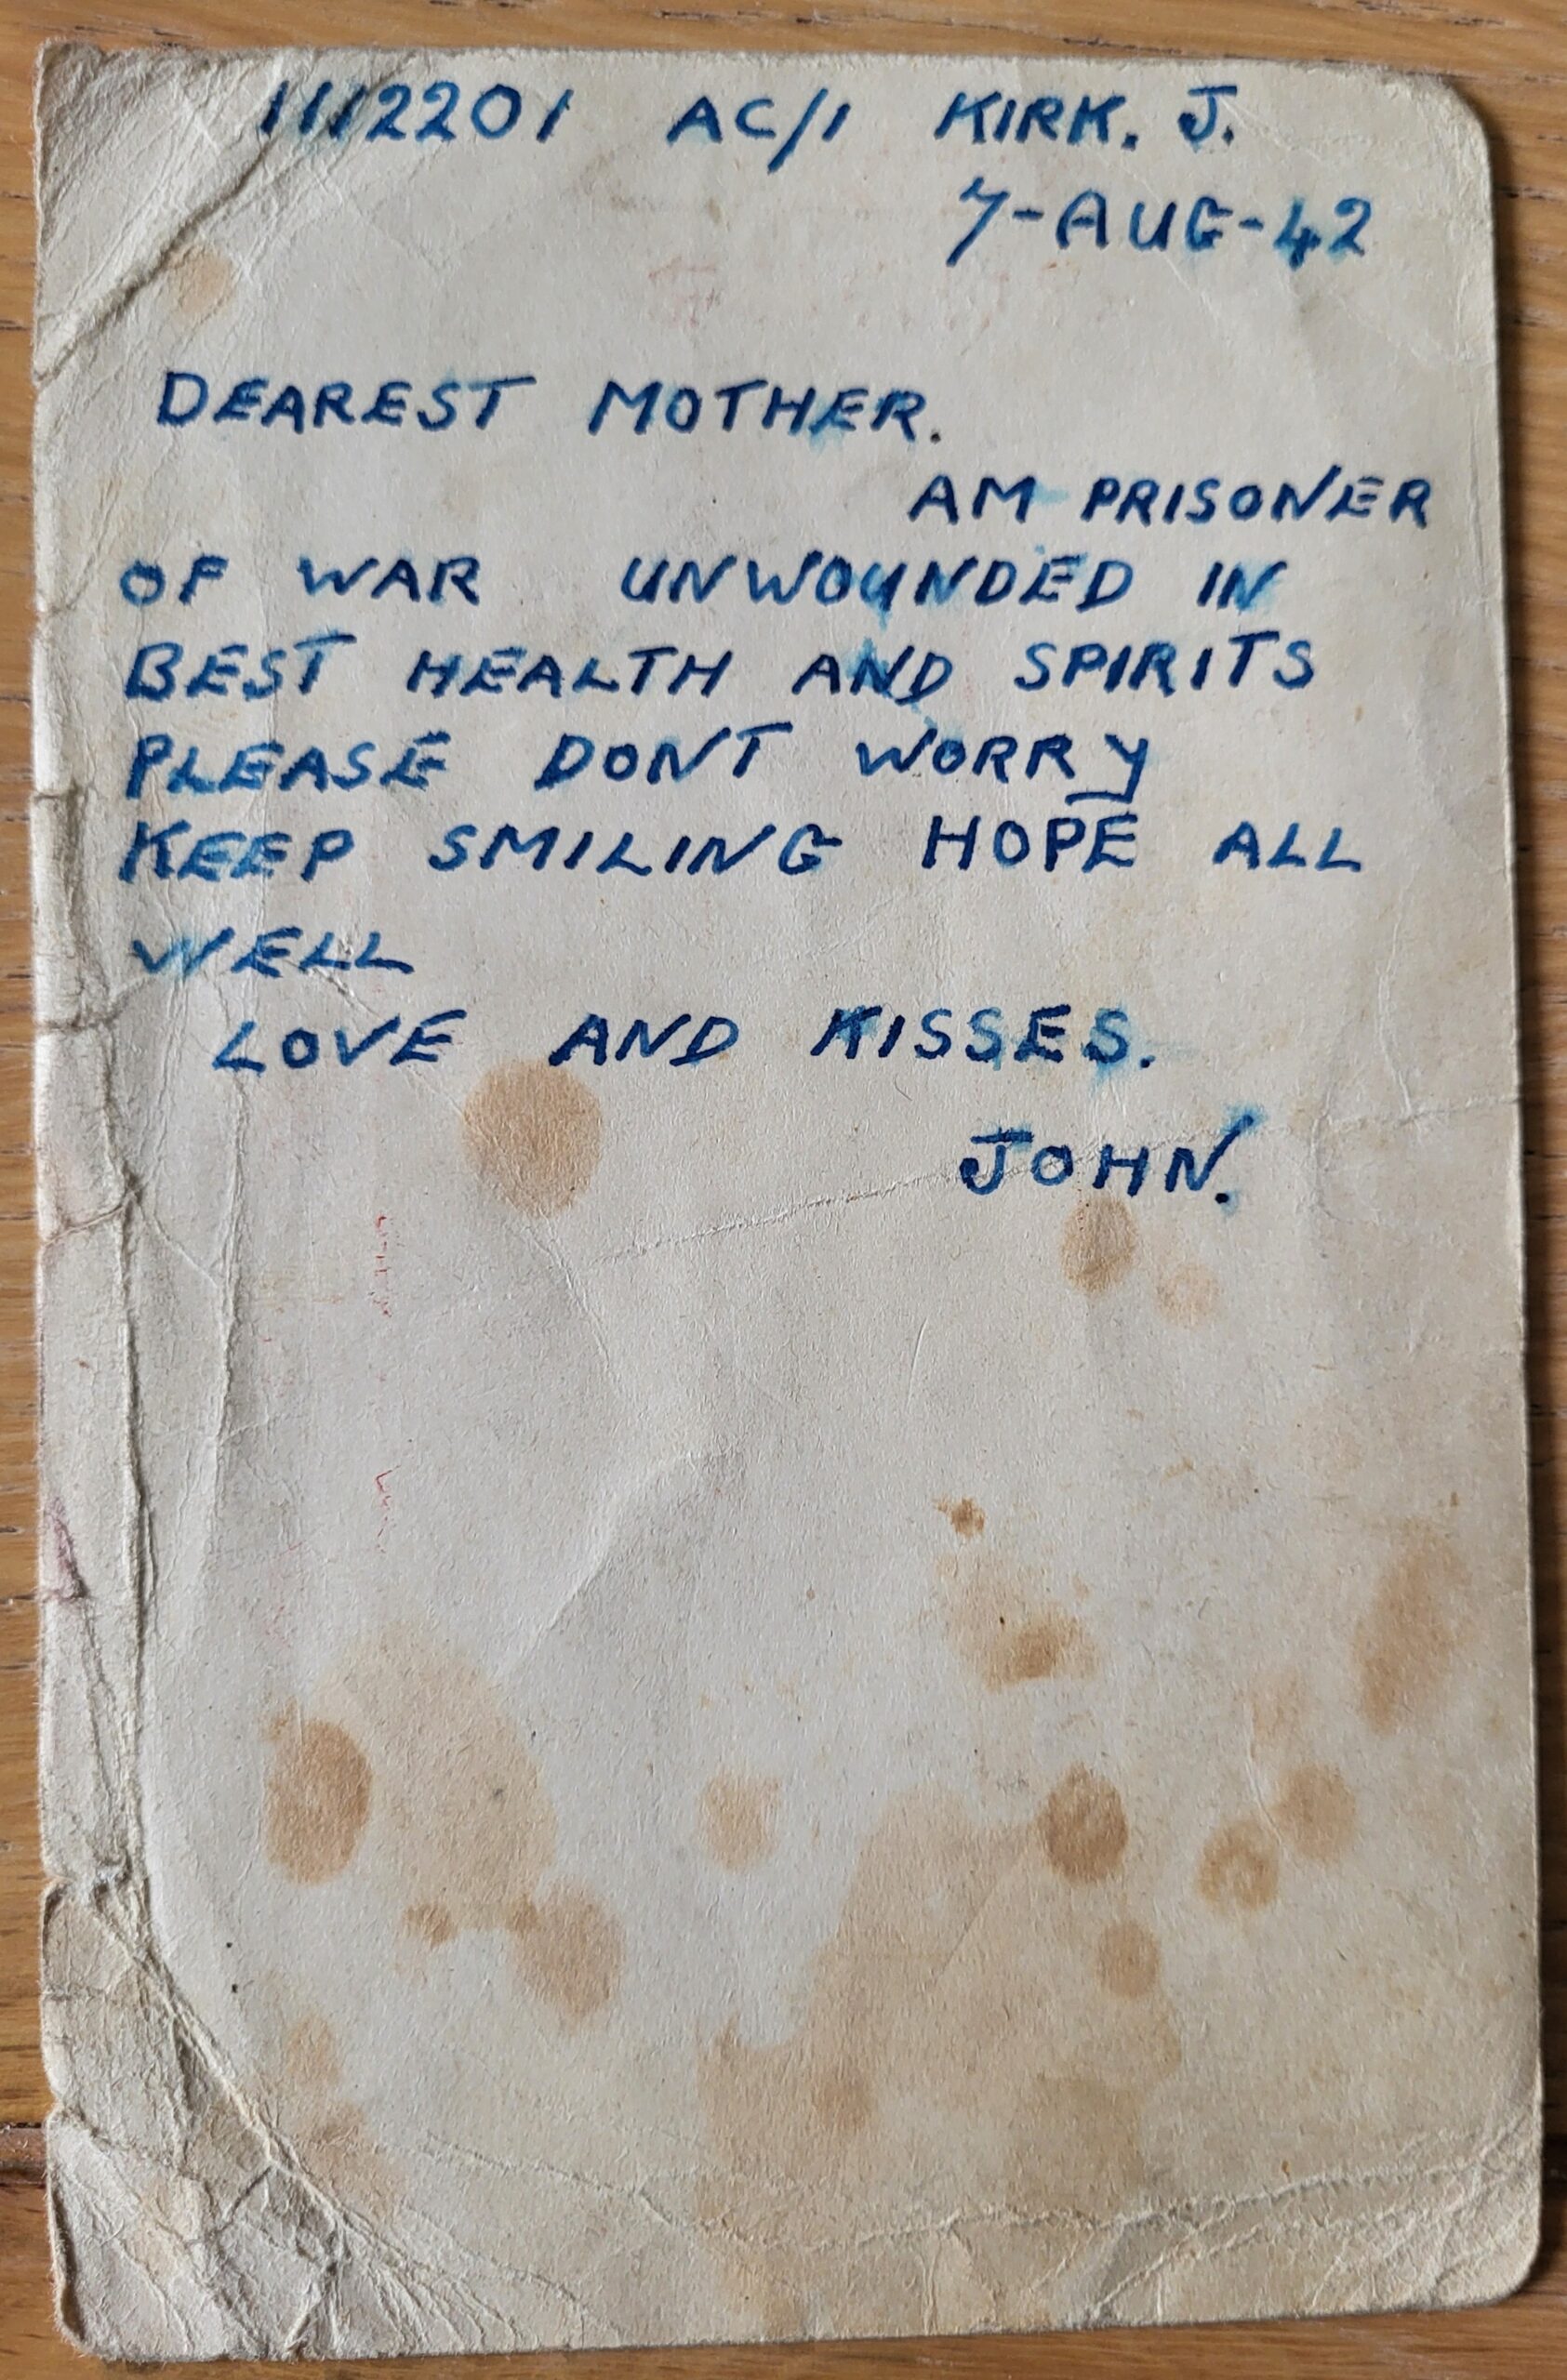 1112201 AC/1 KIRK. J.
7-AUG-42
DEAREST MOTHER.
AM PRISONER
OF WAR UNWOUNDED IN
BEST HEALTH AND SPIRITS
PLEASE DONT WORRY
KEEP SMILING HOPE ALL
WELL
LOVE AND KISSES.
JOHN.